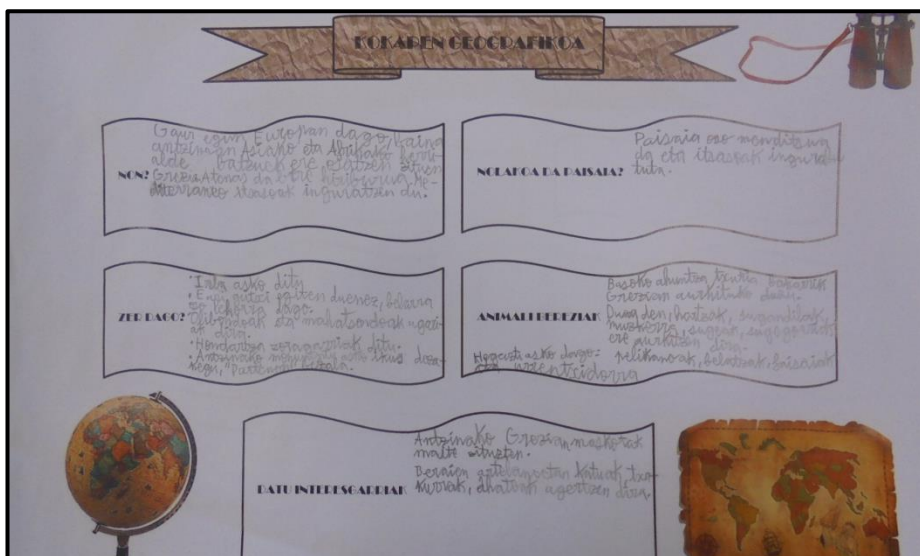 KOKAPEN GEOGRAFIKOA
NON?
Gaur egun Europan dago, baina
antzinean Asiako eta Afrikako herri
alde batzuek ere egiten zituen
Grezia. Atenas da bere hiriburua. Me-
diterraneo itsasoak inguratzen du.
NOLAKOA DA PAISAIA?
Paisaia oso menditsua
da eta itsasoak ingura
tuta.
ZER DAGO?
• Irla asko ditu
• Euri gutxi egiten duenez, belarra
lehorra dago.
Olibondoak eta mahatsondoak ugari
ak dira.
• Hondartza zoragarriak ditu.
• Antzinako monumentu asko ikus deza
kegu, "Partenoi" bezala.
ANIMALI BEREZIAK
Basoko ahuntza txuria bakarrik
Grezian aurkituko dugu.
hartzak, sugandilak,
muskerra, sugeak, sugegorriak
ere aurkitzen dira.
Hegazti asko dago:
pelikanoak, belatzak, faisaiak
eta
DATU INTERESGARRIAK
Antzinako Grezian maskotak
maite zituzten.
Beraien artelanetan katuak, txa-
kurrak, ahateak agertzen dira.